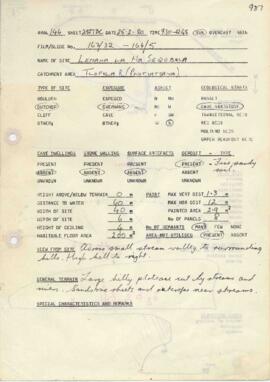 987
AREA 144 SHEET 2927DC DATE 25-2-80 TIME 930-1245 SUN OVERCAST RAIN
FILM/SLIDE NO. 163/32 - 164/5
NAME OF SITE LEHAHA LA MA SEQOBELA
CATCHMENT AREA
TYPE OF SITE EXPOSURE ASPECT GEOLOGICAL STRATA
BOULDER EXPOSED N BASALT
OUTCROP OVERHANG CAVE SANDSTONE
CLIFF CAVE TRANSITIONAL BEDS
OTHER OTHER RED BEDS
MOLTENO BEDS
UPPER BEAUFORT BEDS
CAVE DWELLINGS STONE WALLING SURFACE ARTIFACTS DEPOSIT - TYPE
PRESENT PRESENT PRESENT PRESENT - Fine sandy
ABSENT ABSENT ABSENT ABSENT soil.
UNKNOWN UNKNOWN UNKNOWN
HEIGHT ABOVE/BELOW TERRAIN 0 m PAINT MAX VERT DIST 1-3 m
DISTANCE TO WATER 40 m MAX HOR DIST 12 m
WIDTH OF SITE 40 m PAINTED AREA 29 m²
DEPTH OF SITE 4 m NO OF PANELS 8
HEIGHT OF CEILING 4 m NO OF REMNANTS MANY FEW NONE
HABITABLE FLOOR AREA 200 m² AREA NOT UTILISED PRESENT ABSENT
VIEW FROM SITE Across small stream valley to surrounding
hills. High hill to right.
GENERAL TERRAIN Large hilly plateau cut by streams and
river. Sandstone sheets and outcrops near streams.
SPECIAL CHARACTERISTICS AND REMARKS